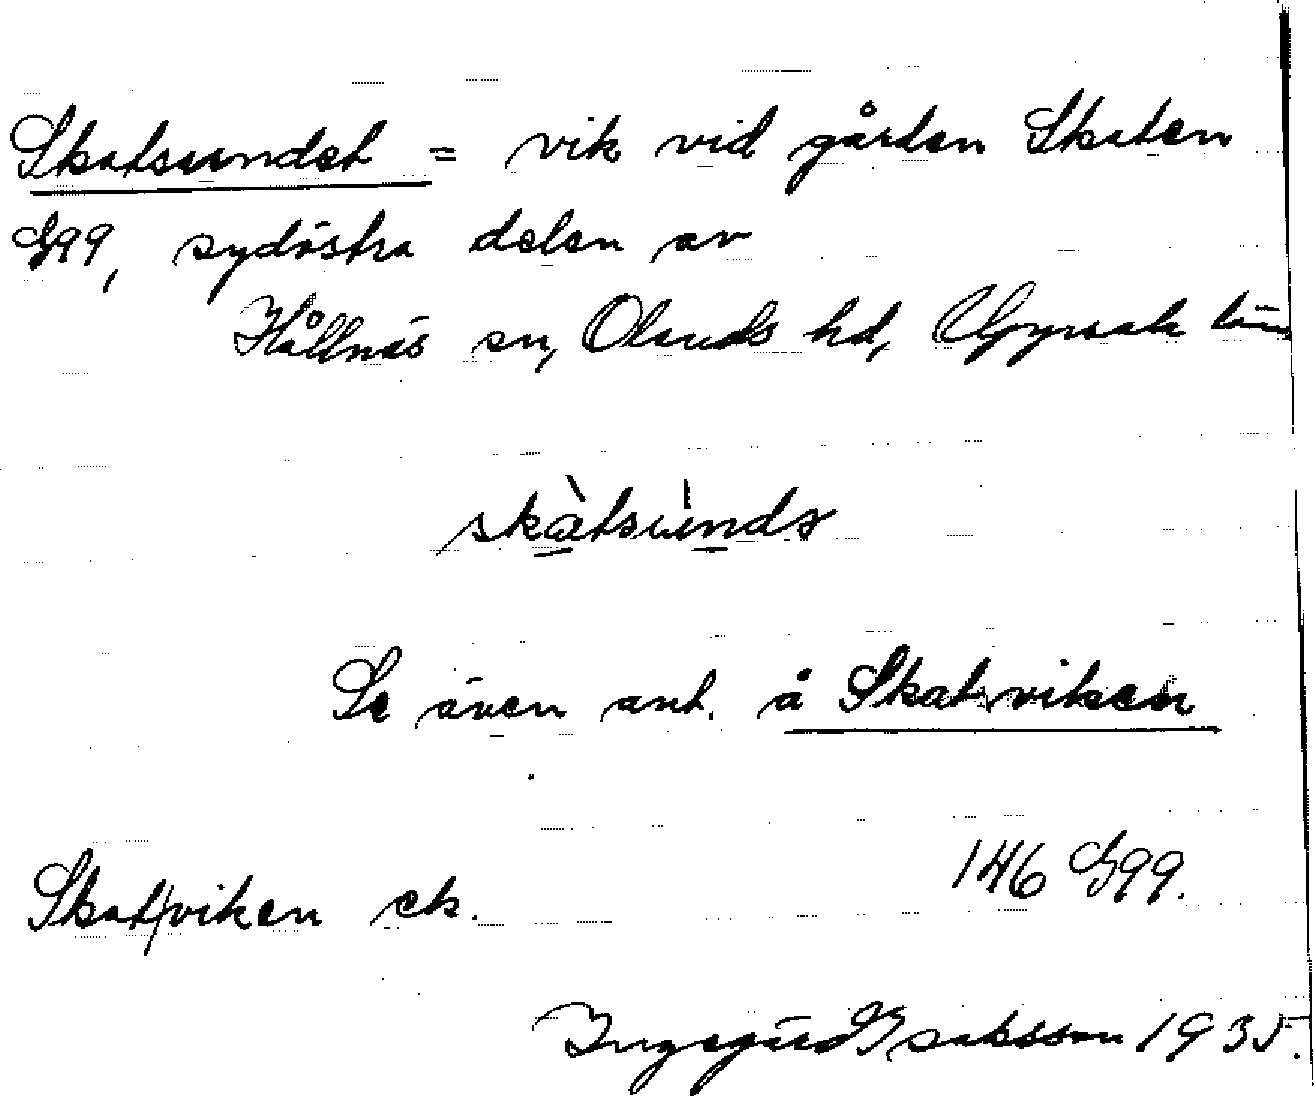 Skatsundet = vik vid gården Skaten
G99, sydöstra delen av
Hållnäs sn, Olands hd, Uppsala län
skàtsùndə
Se även ant. å Skatviken
146 G99.
Skat/viken ek.
Ingegärd Isaksson 1935.